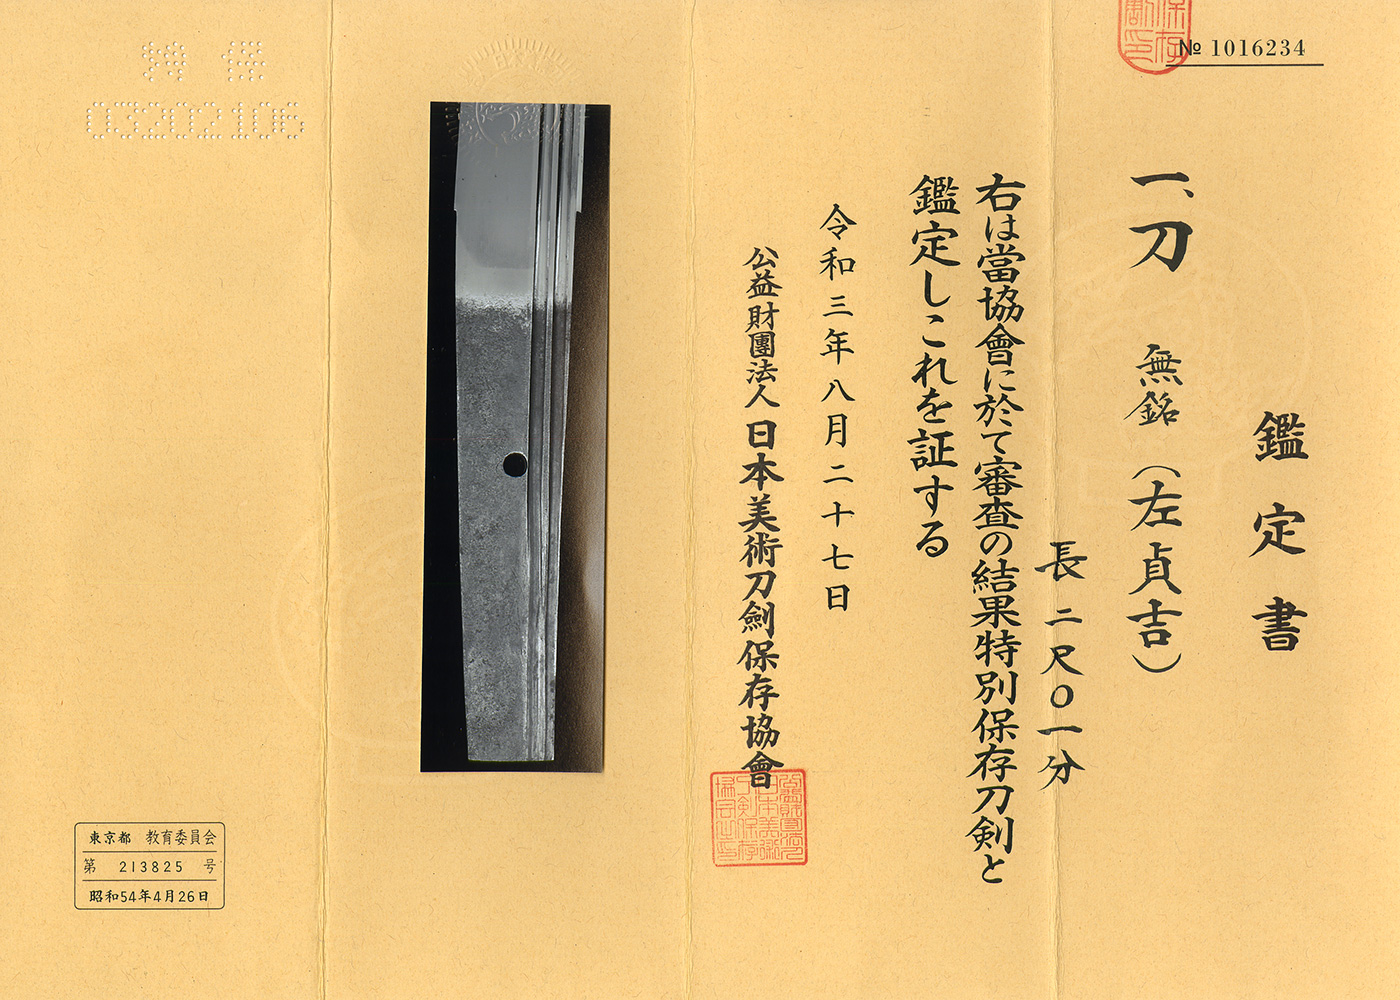 № 1016234
鑑定書
一、刀 無銘（左貞吉）
長 二尺〇一分
右は當協會に於て審査の結果特別保存刀剣と
鑑定しこれを証する
令和三年八月二十七日
公益財團法人 日本美術刀劍保存協會
03202106
東京都 教育委員会
第 213825 号
昭和54年4月26日